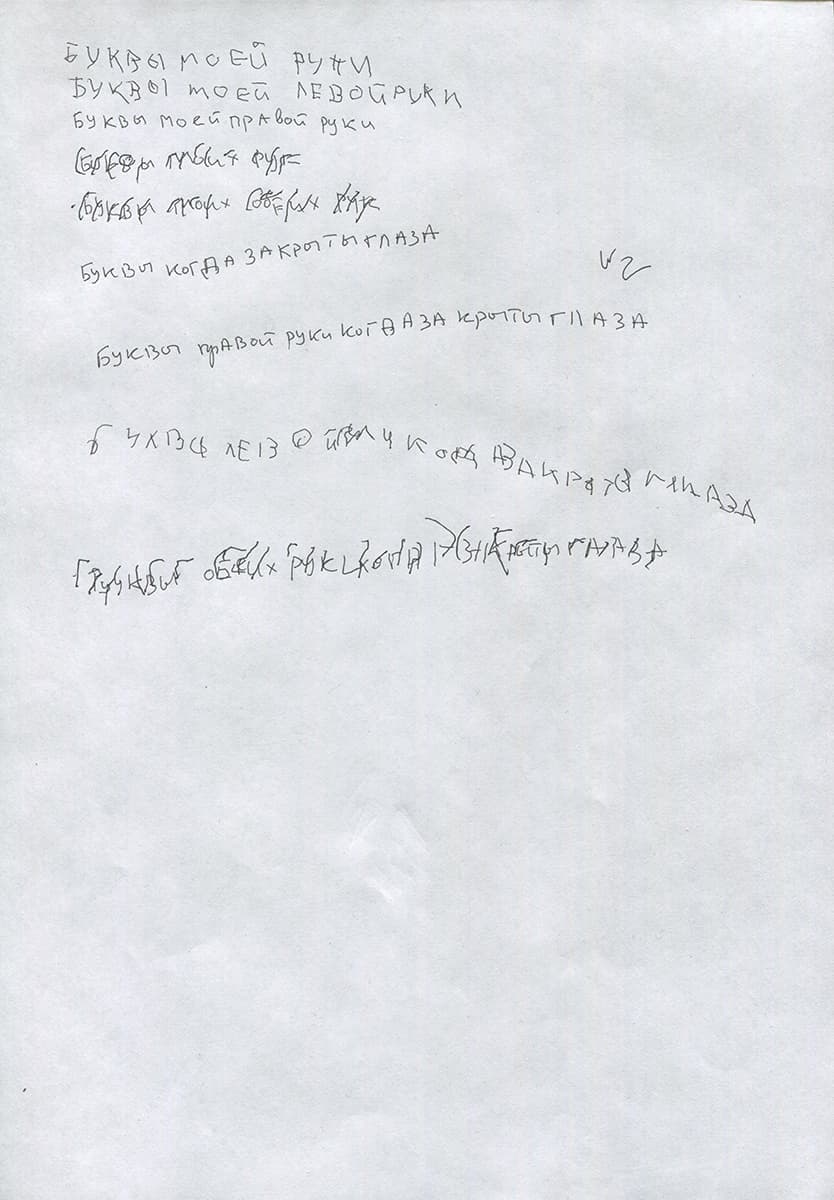 БУКВЫ МОЕЙ РУКИ
БУКВЫ МОЕЙ ЛЕВОЙ РУКИ
БУКВЫ МОЕЙ ПРАВОЙ РУКИ
БУКВЫ МОИХ ОБЕИХ РУК
БУКВЫ КОГДА ЗАКРЫТЫ ГЛАЗА
БУКВЫ ПРАВОЙ РУКИ КОГДА ЗАКРЫТЫ ГЛАЗА
БУКВЫ ЛЕВОЙ КОГДА ЗАКРЫТЫ ГЛАЗА
ОБЕИХ РУК КОГДА ЗАКРЫТЫ ГЛАЗА